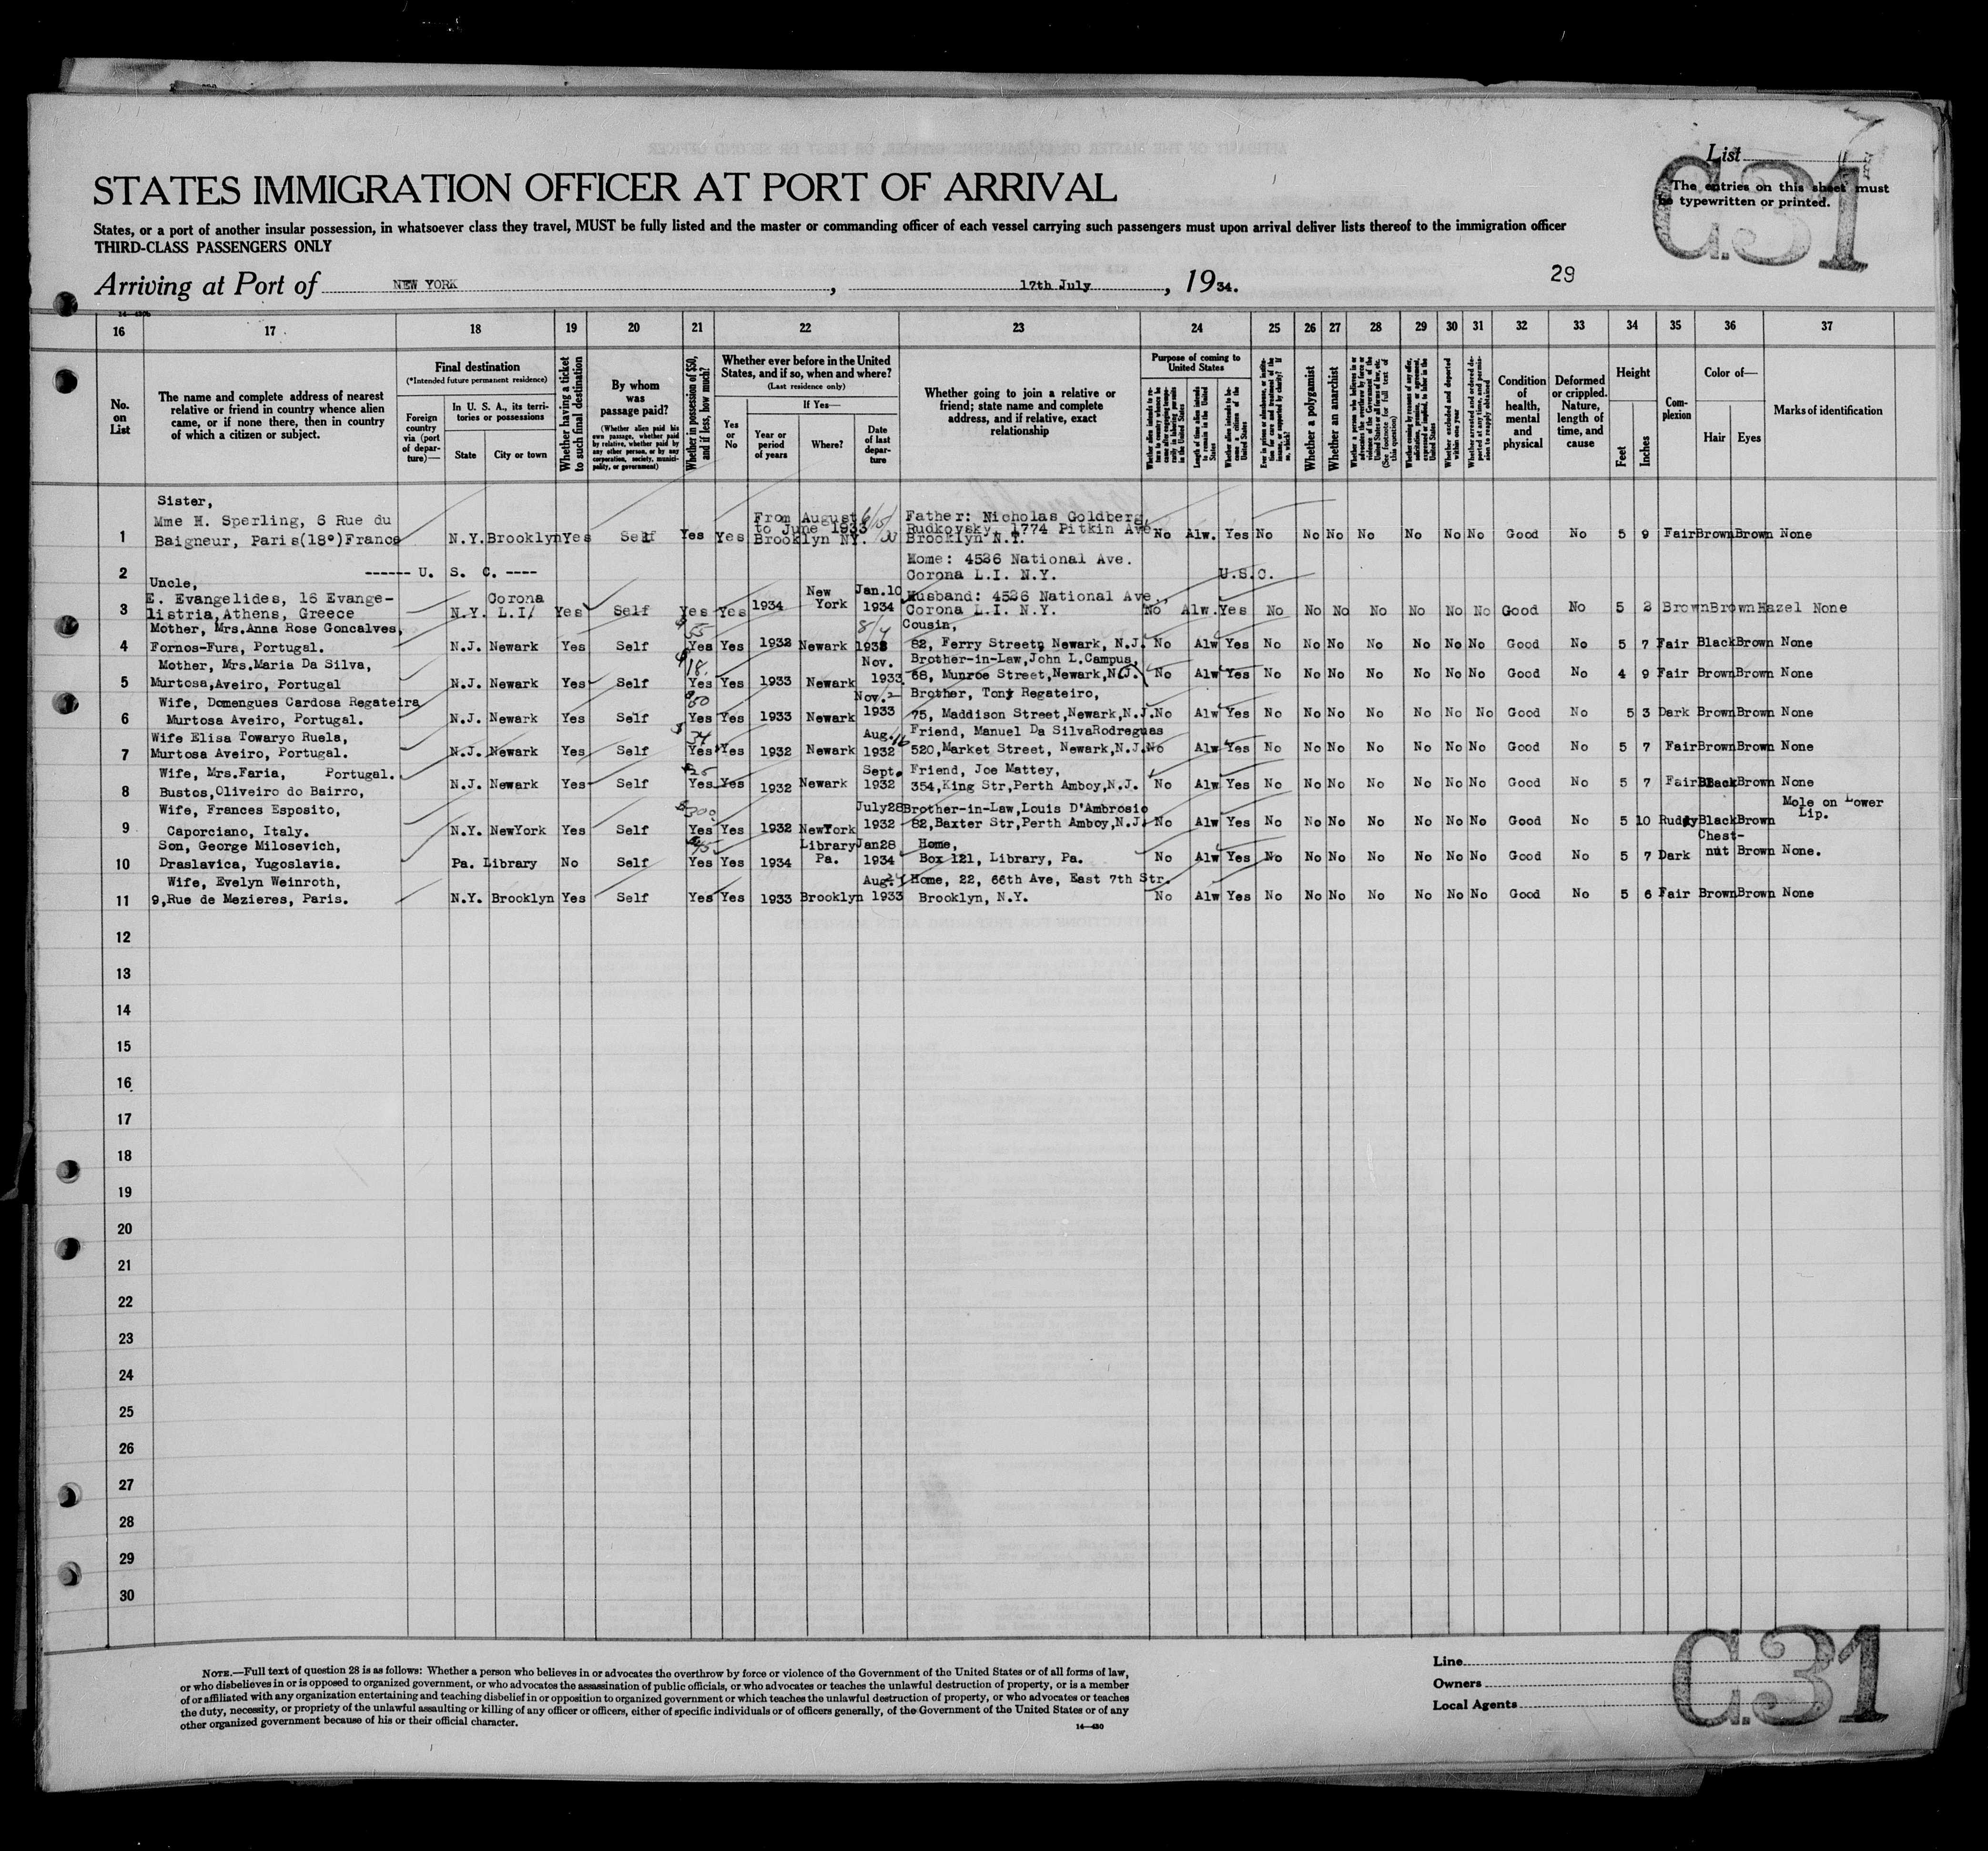 List
C.31
The entries on this sheet must
be typewritten or printed.
STATES IMMIGRATION OFFICER AT PORT OF ARRIVAL
States, or a port of another insular possession, in whatsoever class they travel, MUST be fully listed and the master or commanding officer of each vessel carrying such passengers must upon arrival deliver lists thereof to the immigration officer
THIRD-CLASS PASSENGERS ONLY
Arriving at Port of NEW YORK, 17th July, 1934.
29
16 17 18 19 20 21 22 23 24 25 26 27 28 29 30 31 32 33 34 35 36 37
No. on List
The name and complete address of nearest relative or friend in country whence alien came, or if none there, then in country of which a citizen or subject.
Final destination
(*Intended future permanent residence)
Foreign country via (port of departure)—
In U. S. A., its territories or possessions
State
City or town
Whether having a ticket to such final destination
By whom was passage paid?
(Whether alien paid his own passage, whether paid by relative, whether paid by any other person, or by any corporation, society, municipality, or government)
Whether in possession of $50, and if less, how much?
Whether ever before in the United States, and if so, when and where?
(Last residence only)
Yes or No
If Yes—
Year or period of years
Where?
Date of last departure
Whether going to join a relative or friend; state name and complete address, and if relative, exact relationship
Purpose of coming to United States
Length of time alien intends to remain in the United States
Whether alien intends to become a citizen of the United States
Whether a polygamist
Whether an anarchist
Whether excluded and deported within one year
Condition of health, mental and physical
Deformed or crippled. Nature, length of time, and cause
Height
Feet
Inches
Complexion
Color of—
Hair
Eyes
Marks of identification
1 Sister, Mme H. Sperling, 6 Rue du Baigneur, Paris(18e)France N.Y. Brooklyn Yes Self Yes Yes From August to June 1933 Brooklyn NY. Father: Nicholas Goldberg Rudkovsky, 1774 Pitkin Ave Brooklyn N.Y. No Alw. Yes No No No No No No No Good No 5 9 Fair Brown Brown None
2 ------ U. S. C. ---- Home: 4536 National Ave. Corona L.I. N.Y. U.S.C.
3 Uncle, E. Evangelides, 16 Evangelistria, Athens, Greece N.Y. Corona L.I/ Yes Self Yes Yes 1934 New York Jan.10 1934 Husband: 4536 National Ave., Corona L.I. N.Y. No Alw. Yes No No No No No No No Good No 5 2 Brown Brown Hazel None
4 Mother, Mrs.Anna Rose Goncalves, Fornos-Fura, Portugal. N.J. Newark Yes Self $55 Yes Yes 1932 Newark 8/4 1932 Cousin, 82, Ferry Street, Newark, N.J. No Alw Yes No No No No No No No Good No 5 7 Fair Black Brown None
5 Mother, Mrs.Maria Da Silva, Murtosa,Aveiro, Portugal N.J. Newark Yes Self $18. Yes Yes 1933 Newark Nov. 1933 Brother-in-Law,John L.Campus, 68, Munroe Street,Newark,N.J. No Alw Yes No No No No No No No Good No 4 9 Fair Brown Brown None
6 Wife, Domengues Cardosa Regateira Murtosa Aveiro, Portugal. N.J. Newark Yes Self Yes Yes 1933 Newark Nov. 2 1933 Brother, Tony Regateiro, 75, Maddison Street,Newark,N.J. No Alw Yes No No No No No No No Good No 5 3 Dark Brown Brown None
7 Wife Elisa Towaryo Ruela, Murtosa Aveiro, Portugal. N.J. Newark Yes Self $34 Yes Yes 1932 Newark Aug. 16 1932 Friend, Manuel Da SilvaRodreguas 520,Market Street, Newark,N.J. No Alw Yes No No No No No No No Good No 5 7 Fair Brown Brown None
8 Wife, Mrs.Faria, Portugal. Bustos,Oliveiro do Bairro, N.J. Newark Yes Self $25 Yes Yes 1932 Newark Sept. 1932 Friend, Joe Mattey, 354,King Str,Perth Amboy,N.J. No Alw Yes No No No No No No No Good No 5 7 Fair Black Brown None
9 Wife, Frances Esposito, Caporciano, Italy. N.Y. NewYork Yes Self Yes Yes 1932 NewYork July28 1932 Brother-in-Law,Louis D'Ambrosio 82,Baxter Str,Perth Amboy,N.J. No Alw Yes No No No No No No No Good No 5 10 Ruddy Black Brown Mole on Lower Lip.
10 Son, George Milosevich, Draslavica, Yugoslavia. Pa. Library No Self $45 Yes Yes 1934 Library Pa. Jan28 1934 Home, Box 121, Library, Pa. No Alw Yes No No No No No No No Good No 5 7 Dark Chestnut Brown None.
11 Wife, Evelyn Weinroth, 9,Rue de Mezieres, Paris. N.Y. Brooklyn Yes Self Yes Yes 1933 Brooklyn Aug. 24 1933 Home, 22, 66th Ave, East 7th Str. Brooklyn, N.Y. No Alw Yes No No No No No No No Good No 5 6 Fair Brown Brown None
12
13
14
15
16
17
18
19
20
21
22
23
24
25
26
27
28
29
30
NOTE.—Full text of question 28 is as follows: Whether a person who believes in or advocates the overthrow by force or violence of the Government of the United States or of all forms of law,
or who disbelieves in or is opposed to organized government, or who advocates the assassination of public officials, or who advocates or teaches the unlawful destruction of property, or is a member
of or affiliated with any organization entertaining and teaching disbelief in or opposition to organized government or which teaches the unlawful destruction of property, or who advocates or teaches
the duty, necessity, or propriety of the unlawful assaulting or killing of any officer or officers, either of specific individuals or of officers generally, of the Government of the United States or of any
other organized government because of his or their official character.
14—430
Line
Owners
Local Agents
C.31